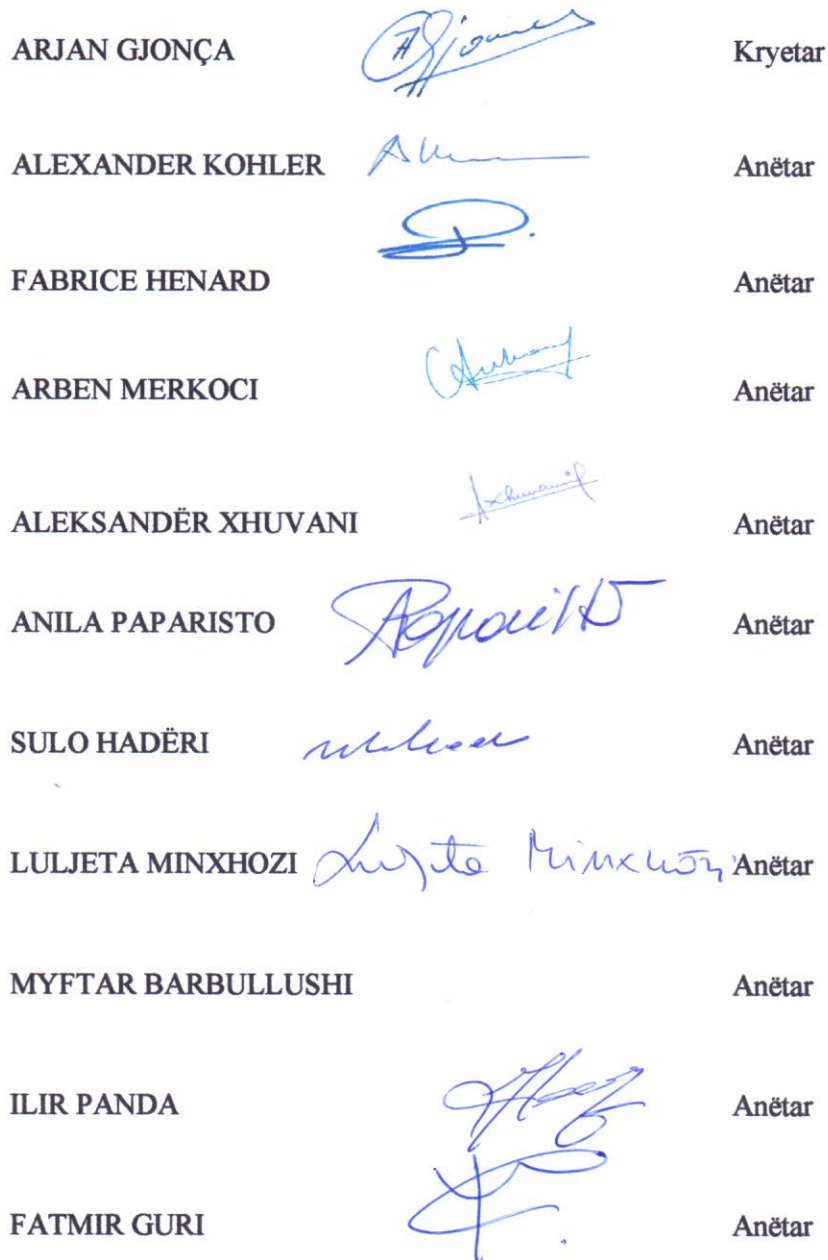 ARJAN GJONÇA Kryetar
ALEXANDER KOHLER Anëtar
FABRICE HENARD Anëtar
ARBEN MERKOCI Anëtar
ALEKSANDËR XHUVANI Anëtar
ANILA PAPARISTO Anëtar
SULO HADËRI Anëtar
LULJETA MINXHOZI Luljeta Minxhozi Anëtar
MYFTAR BARBULLUSHI Anëtar
ILIR PANDA Anëtar
FATMIR GURI Anëtar